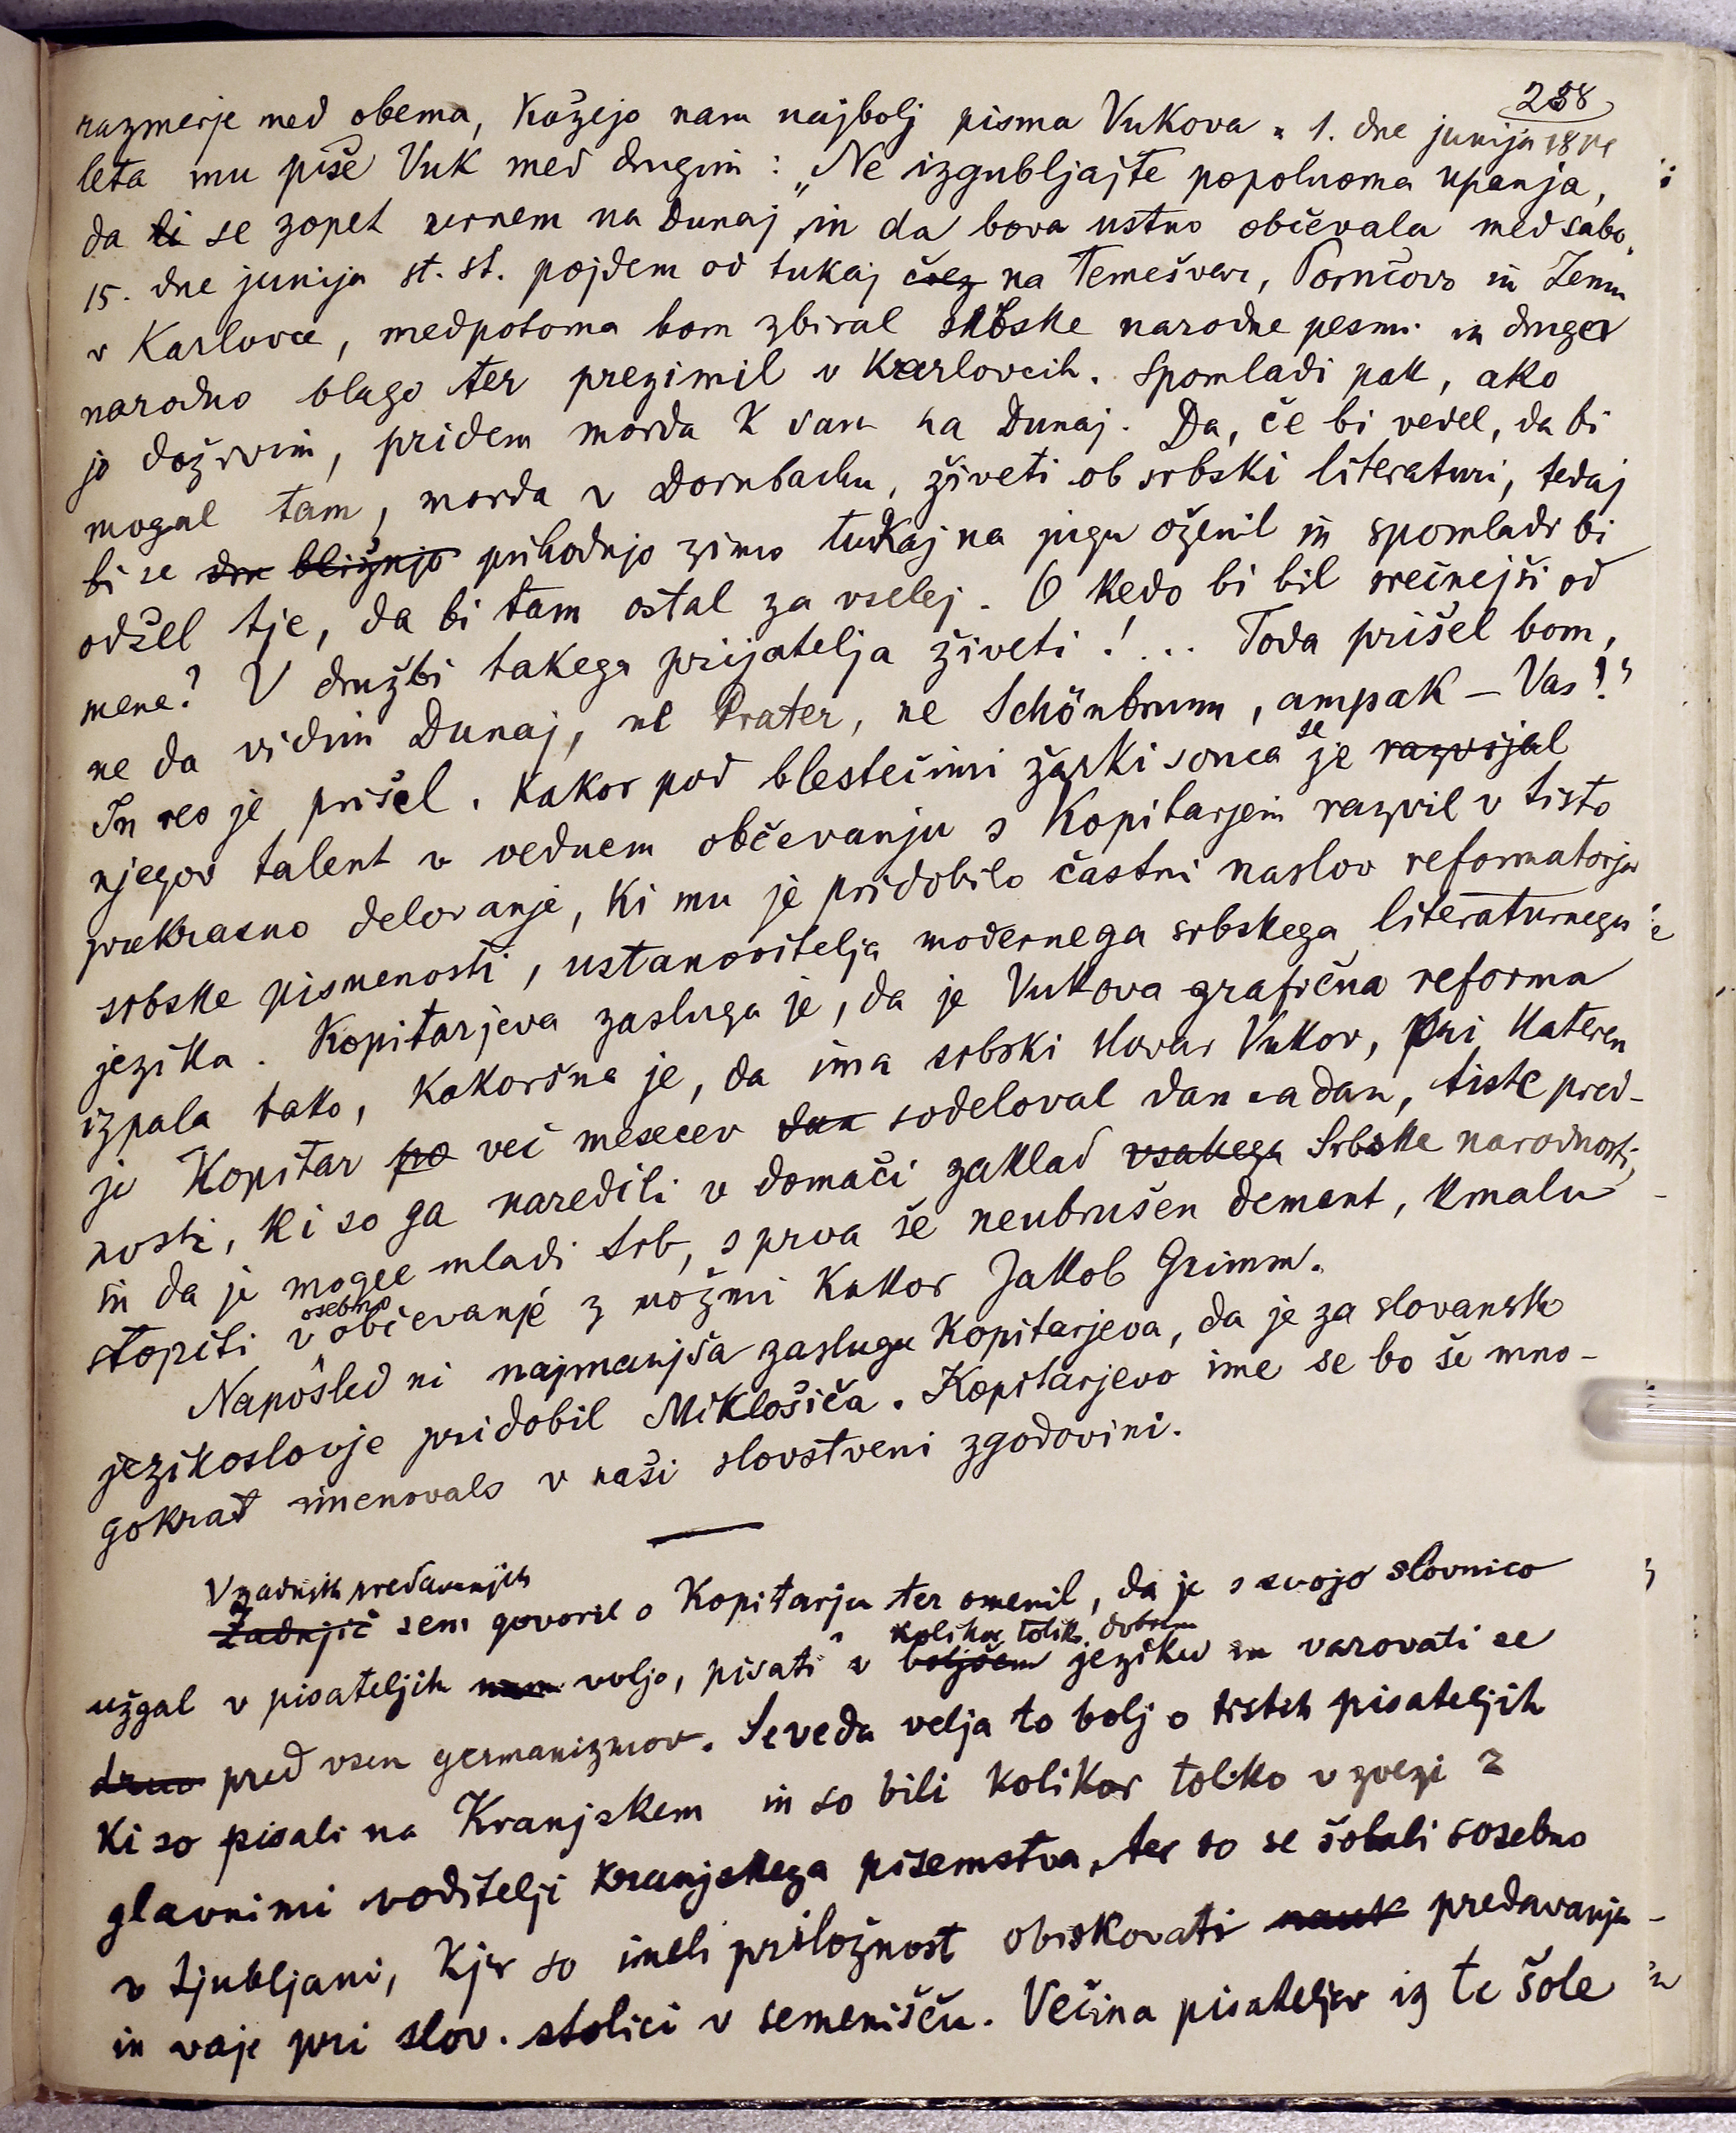 238
razmerje med obema, kažejo nam najbolj pisma Vukova. 1. dne junija
leta mu piše Vuk med drugim: „Ne izgubljajte popolnoma upanja,
da li se zopet vrnem na Dunaj in da bova ustno občevala med sabo.
15. dne junija st. st. pojdem od tukaj črez na Temešvar, in Zemun
v Karlovce, medpotoma bom zbiral srbske narodne pesmi in drugo
narodno blago ter prezimil v Karlovcih. Spomladi pak, ako
jo doživim, pridem morda k vam na Dunaj. Da, če bi vedel, da bi
mogel tam, morda v Dornbachu, živeti ob srbski literaturi, tedaj
bi se bližnjo prihodnjo zimo tukaj na jugu oženil in spomladi bi
odšel tje, da bi tam ostal za vselej. O kedo bi bil srečnejši od
mene? V družbi takega prijatelja živeti! ... Toda prišel bom,
ne da vidim Dunaj, ne Prater, ne Schönbrunn, ampak – Vas!"
In res je prišel. Kakor pod blestečimi žarki sonca se je razvijal
njegov talent v vednem občevanju s Kopitarjem razvil v tisto
prekrasno delovanje, ki mu je pridobilo častni naslov reformatorja
srbske pismenosti, ustanovitelja modernega srbskega literaturnega
jezika. Kopitarjeva zasluga je, da je Vukova grafična reforma
izpala tako, kakoršna je, da ima srbski slovar Vukov, pri katerem
je Kopitar po več mesecev dan sodeloval dan na dan, tiste pred-
nosti, ki so ga naredili v domači zaklad vsakega Srbske narodnosti,
in da je mogel mladi Srb, s prva še neubrušen demant, kmalu
stopiti v osebno občevanje z možmi kakor Jakob Grimm.
Naposled ni najmanjša zasluga Kopitarjeva, da je za slovansko
jezikoslovje pridobil Miklošiča. Kopitarjevo ime se bo še mno-
gokrat imenovalo v naši slovstveni zgodovini.
V zadnjih predavanjih
Zadnjič sem govoril o Kopitarju ter omenil, da je s svojo slovnico
užgal v pisateljih voljo, pisati v boljšem kolikor toliko dobrem jeziku in varovati se
pred vsem germanizmov. Seveda velja to bolj o tistih pisateljih
ki so pisali na Kranjskem in so bili kolikor toliko v zvezi z
glavnimi voditelji kranjskega pisemstva, ter so se šolali sosebno
v Ljubljani, kjer so imeli priložnost obiskovati nauk predavanja
in vaje pri slov. stolici v semenišču. Večina pisateljev iz te šole